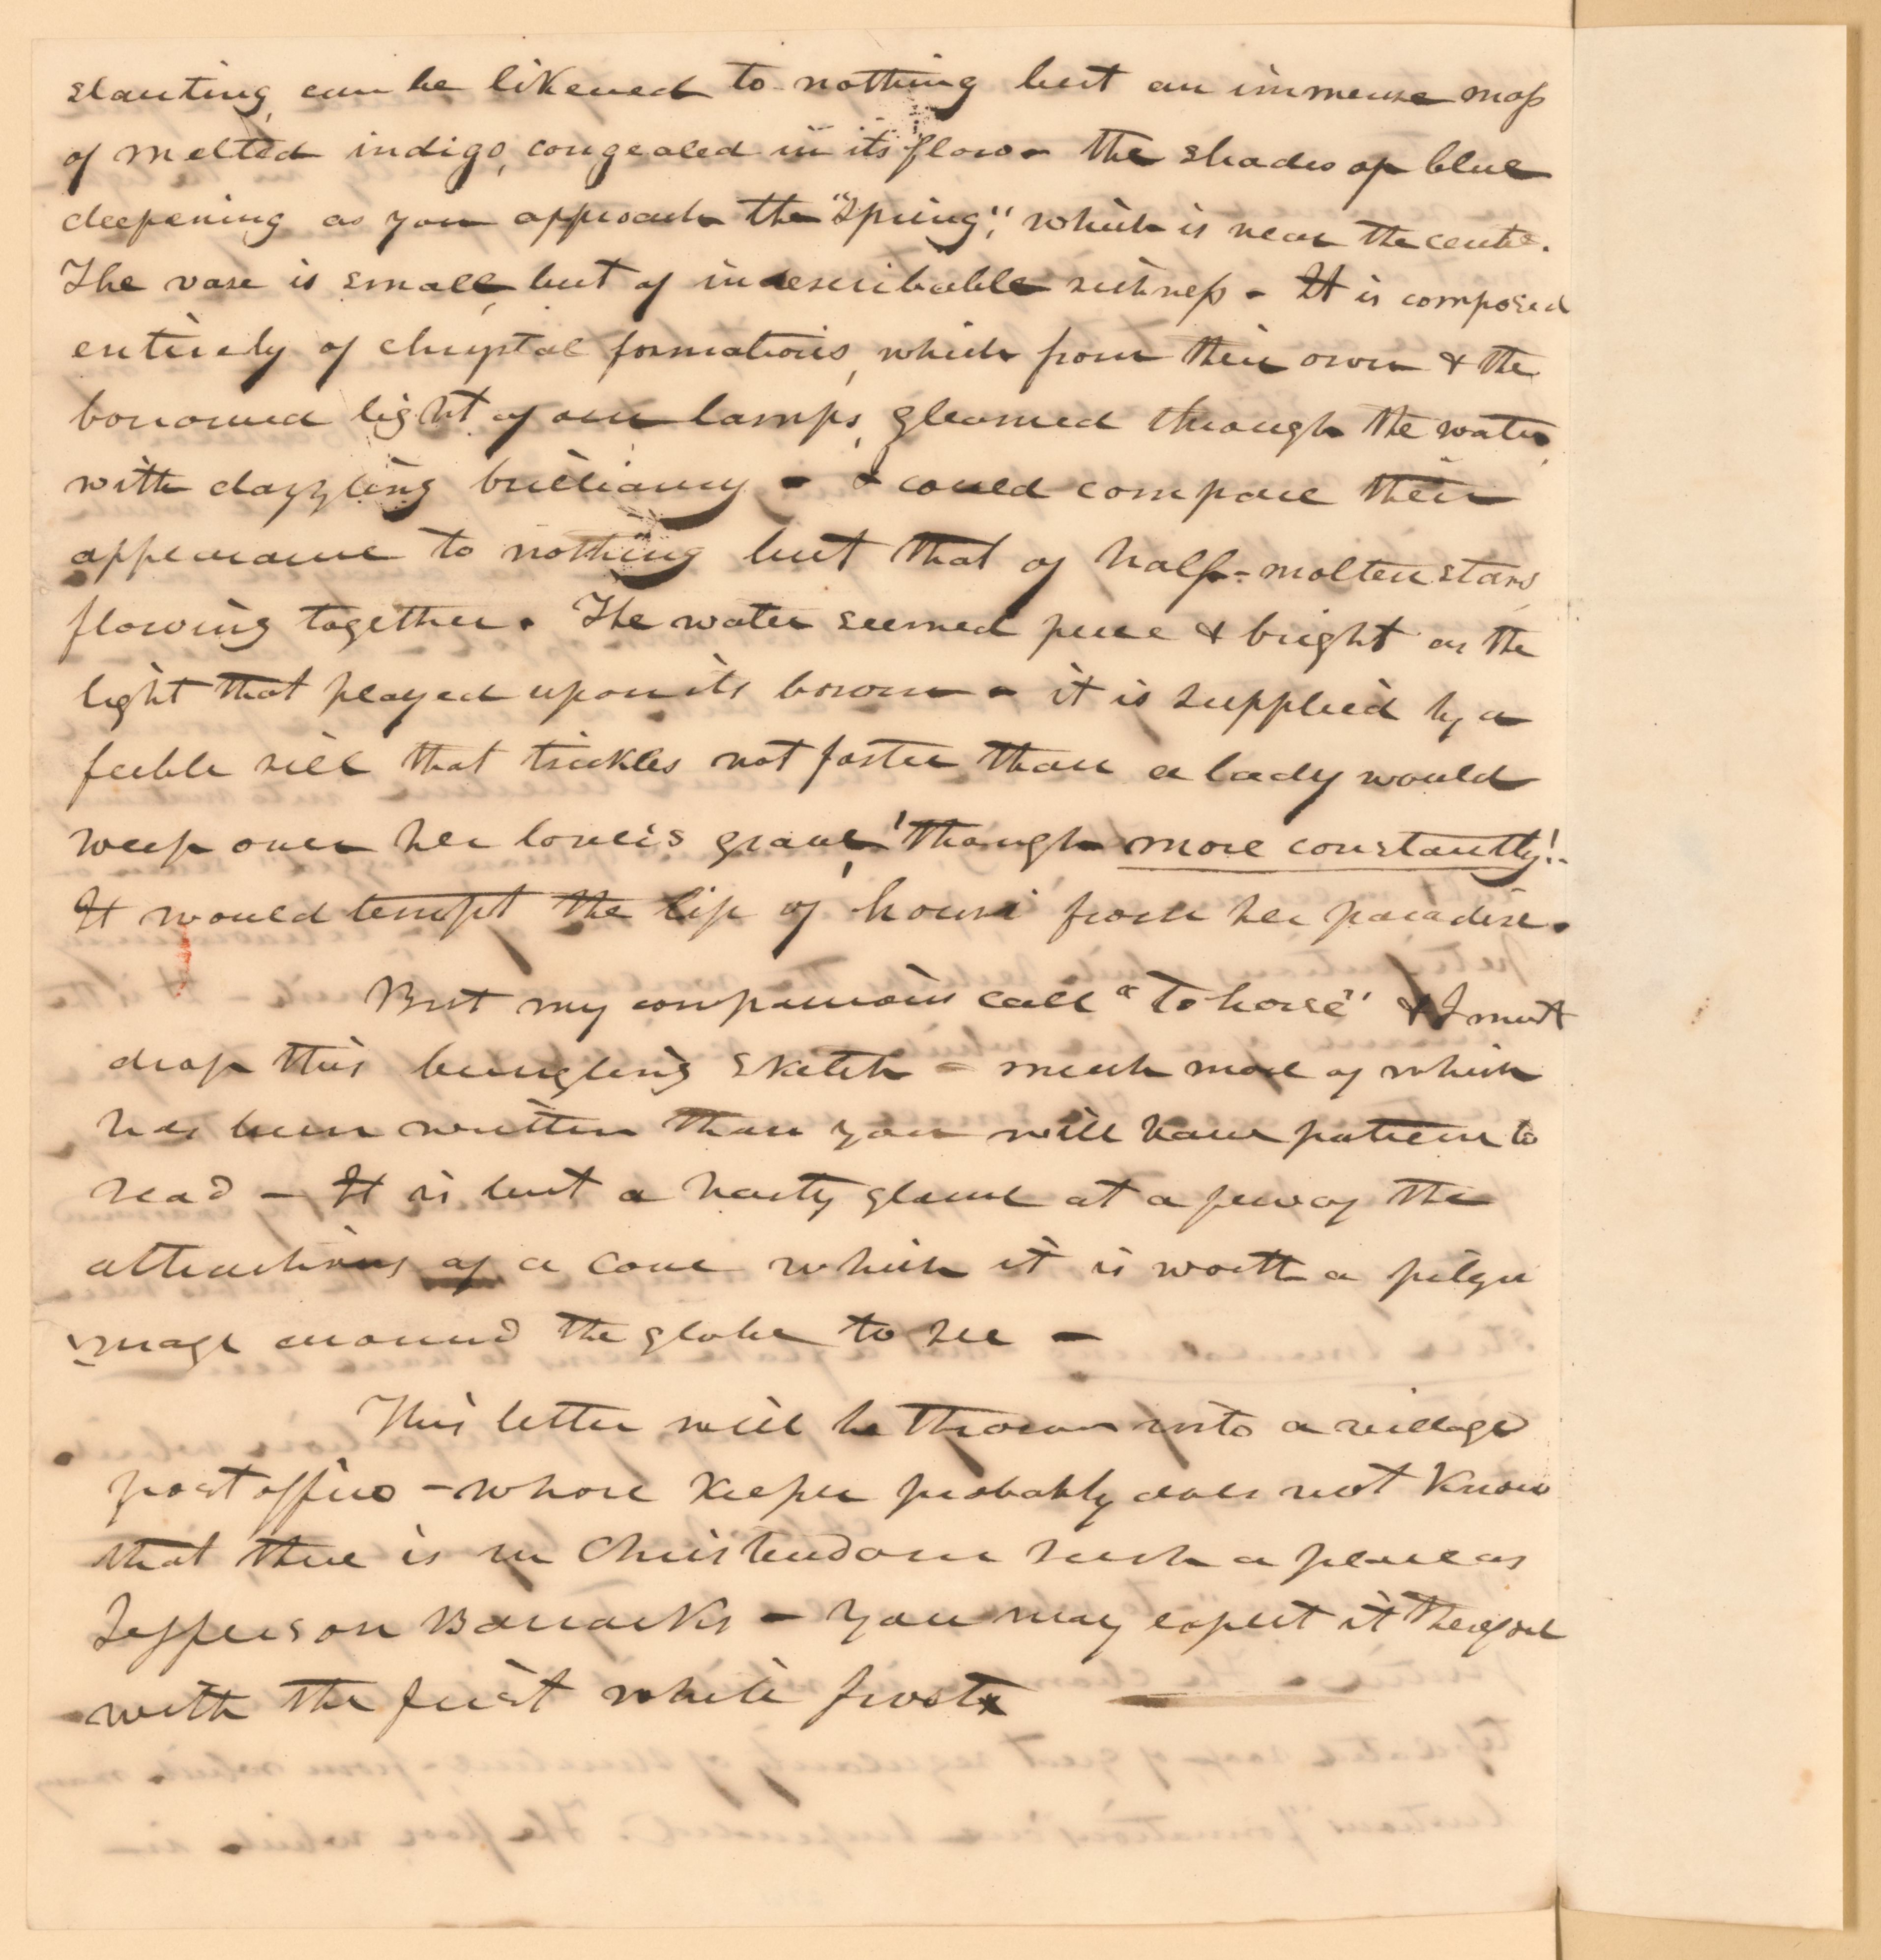 slanting, can be likened to nothing but an immense mass
of melted indigo, congealed in its flow - the shades of blue
deepening as you approach the "Spring", which is near the centre.
The vase is small, but of indescribable richness - It is composed
entirely of chrystal formations, which from their own & the
borrowed light of our lamps, gleamed through the water,
with dazzling brilliancy - I could compare their
appearance to nothing but that of half-molten stars
flowing together. The water seemed pure & bright as the
light that played upon its bosom - it is supplied by a
feeble rill that trickles not faster than a lady would
weep over her lover's grave, 'though more constantly!-
It would tempt the lip of houri from her paradise.
But my companions call "To horse" & I must
drop this bungling sketch - much more of which
has been written than you will have patience to
read - It is but a hasty glance at a few of the
attractions of a cave which it is worth a pilgri
mage around the globe to see -
This letter will be thrown into a village
post office - whose keeper probably does not know
that there is in Christendom such a place as
Jefferson Barracks - You may expect it therefore
with the first white frost